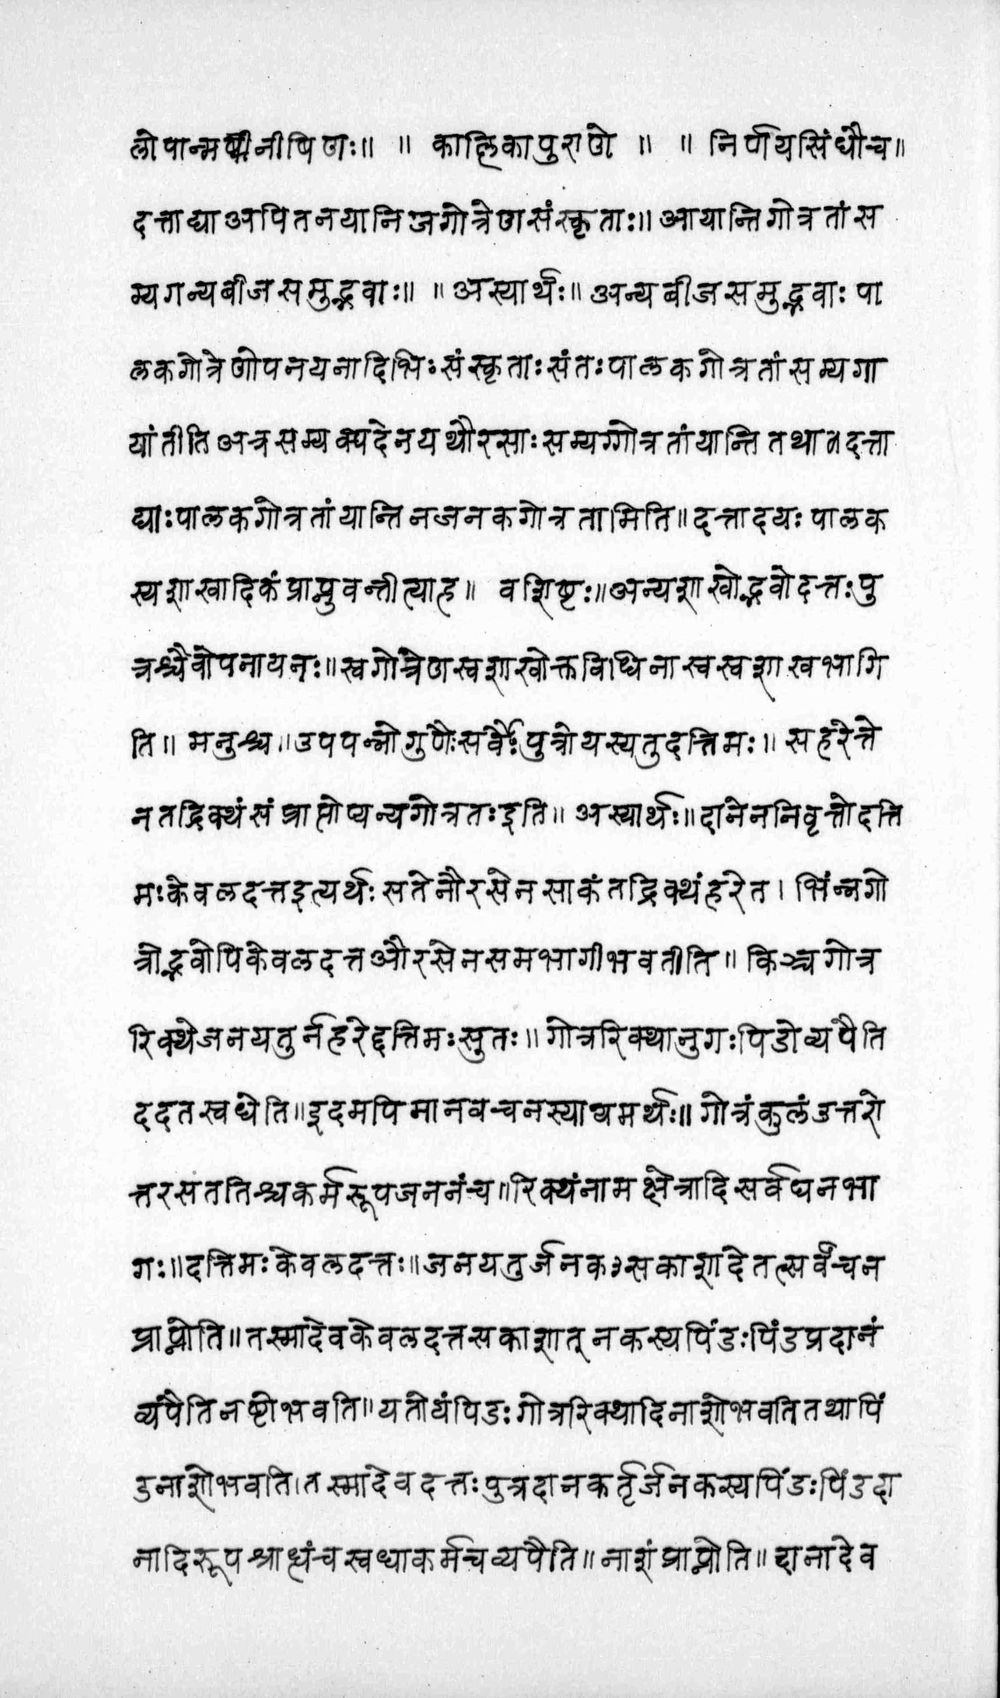 लोपान्मषीनीषिणः॥ ॥ कालिकापुराणे ॥ ॥ निर्णयसिंधौच॥
दत्ताद्या अपितनयानिजगोत्रेणसंस्कृताः॥ आयान्तिगोत्रतांस
म्यगन्यबीजसमुद्भवाः॥ ॥ अस्यार्थः॥ अन्यबीजसमुद्भवाः पा
लकगोत्रेणोपनयनादिभिः संस्कृताः संतः पालकगोत्रतांसम्यगा
यांतीति अत्रसम्यक्पदेनयथौरसाः सम्यग्गोत्रतांयान्ति तथा दत्ता
द्याः पालकगोत्रतांयान्ति नजनकगोत्रतामिति॥ दत्तादयः पालक
स्यशाखादिकंप्राप्नुवन्तीत्याह॥ वशिष्टः॥ अन्यशाखोद्भवोदत्तः पु
त्रश्चैवोपनायनः॥ स्वगोत्रेणस्वशाखोक्तविधिनास्वस्वशाखभागि
ति॥ मनुश्च॥ उपपन्नोगुणैः सर्वैः पुत्रोयस्यतुदत्तिमः॥ सहरेत्ते
नतद्रिक्थंसंप्राप्तोप्यन्यगोत्रतः इति॥ अस्यार्थः॥ दानेननिवृत्तोदत्ति
मः केवलदत्त इत्यर्थः सतेनौरसेनसाकंतद्रिक्थंहरेत। भिंन्नगो
त्रोद्भवोपिकेवलदत्त औरसेनसमभागीभवतीति॥ किञ्चगोत्र
रिक्थेजनयतुर्नहरेद्दत्तिमः सुतः॥ गोत्ररिक्थानुगः पिडोव्यपैति
ददतस्वधेति॥ इदमपिमानवचनस्यायमर्थः॥ गोत्रंकुलंउत्तरो
त्तरसंततिश्चकर्मरूपजननंच॥ रिक्थंनामक्षेत्रादिसर्वधनभा
गः॥ दत्तिमः केवलदत्तः॥ जनयतुर्जनकसकाशादेतत्सर्वंचन
प्राप्नोति॥ तस्मादेवकेवलदत्तसकाशात् नकस्यपिंडः पिंडप्रदानं
व्यपैतिनष्टोभवति॥ यतोयंपिडः गोत्ररिक्थादिनाशोभवतितथापिं
डनाशोभवति। तस्मादेवदत्तः पुत्रदानकर्तृर्जनकस्यपिंडः पिंडदा
नादिरूपश्राध्धंचस्वधाकर्मचव्यपैति॥ नाशंप्राप्नोति॥ दानादेव